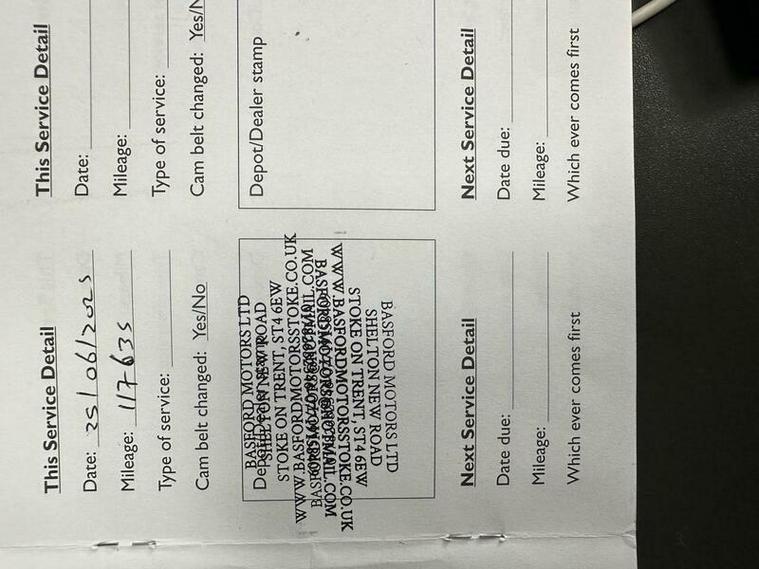 This Service Detail
Date: 25/06/2025
Mileage: 117635
Type of service:
Cam belt changed: Yes/No
BASFORD MOTORS LTD
Depot/Dealer stamp
SHELTON NEW ROAD
STOKE ON TRENT, ST4 6EW
WWW.BASFORDMOTORSSTOKE.CO.UK
WWW.BASFORDMOTORSSTOKE.CO.UK
STOKE ON TRENT, ST4 6EW
SHELTON NEW ROAD
BASFORD MOTORS LTD
Next Service Detail
Date due:
Mileage:
Which ever comes first
This Service Detail
Date:
Mileage:
Type of service:
Cam belt changed: Yes/N
Depot/Dealer stamp
Next Service Detail
Date due:
Mileage:
Which ever comes first